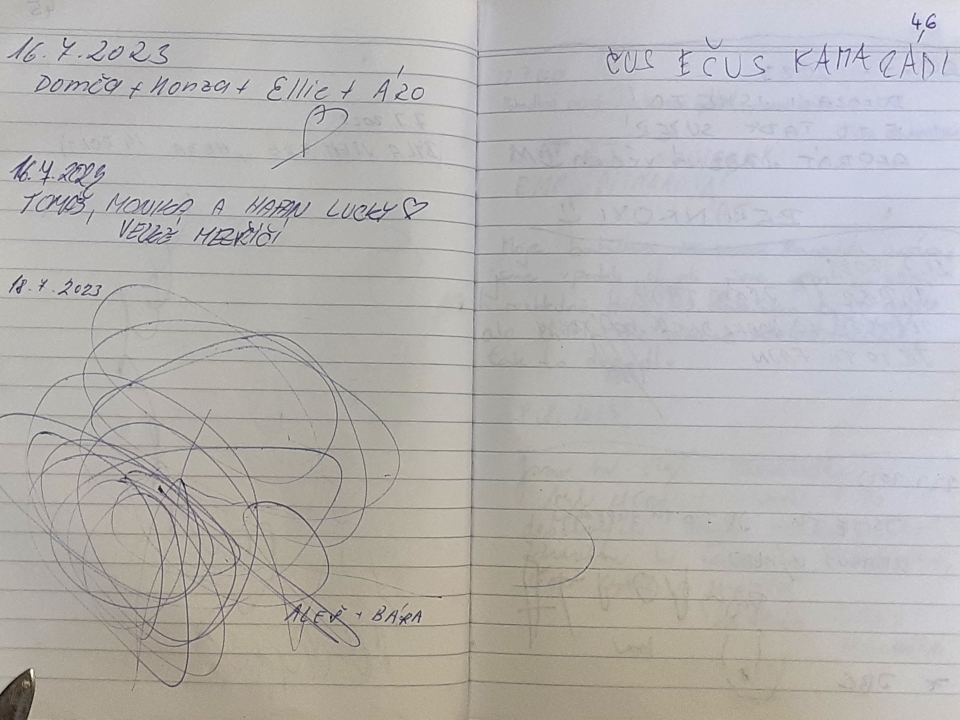 16.7.2023
Domča + Honza + Ellie + Ážo
16.7.2023
TOMÁŠ, MONIKA A HAFAN LUCKY ♡
VELKÉ MEZIŘÍČÍ
18.7.2023
ALEŠ + BÁRA
46
ČUS EČUS KAMARÁDI